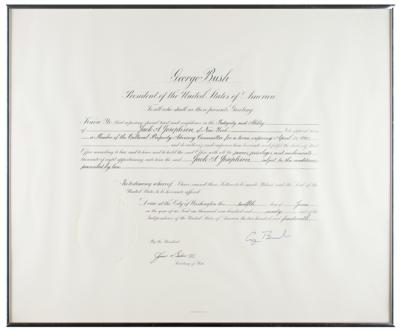 George Bush
President of the United States of America.
To all who shall see these presents, Greeting:
Know Ye, that reposing special trust and confidence in the Integrity and Ability
of Jack A. Josephson, of New York, I do appoint him
a Member of the Cultural Property Advisory Committee for a term expiring April 25, 
and do authorize and empower him to execute and fulfil the duties of that
Office according to law, and to have and to hold the said Office with all the powers, privileges and emoluments
thereunto of right appertaining unto him the said Jack A. Josephson, subject to the conditions
prescribed by law.
In testimony whereof, I have caused these Letters to be made Patent and the Seal of the
United States to be hereunto affixed.
Done at the City of Washington this twelfth day of June
in the year of our Lord one thousand nine hundred and ninety and of the
Independence of the United States of America the two hundred and fourteenth.
By the President:
Secretary of State.